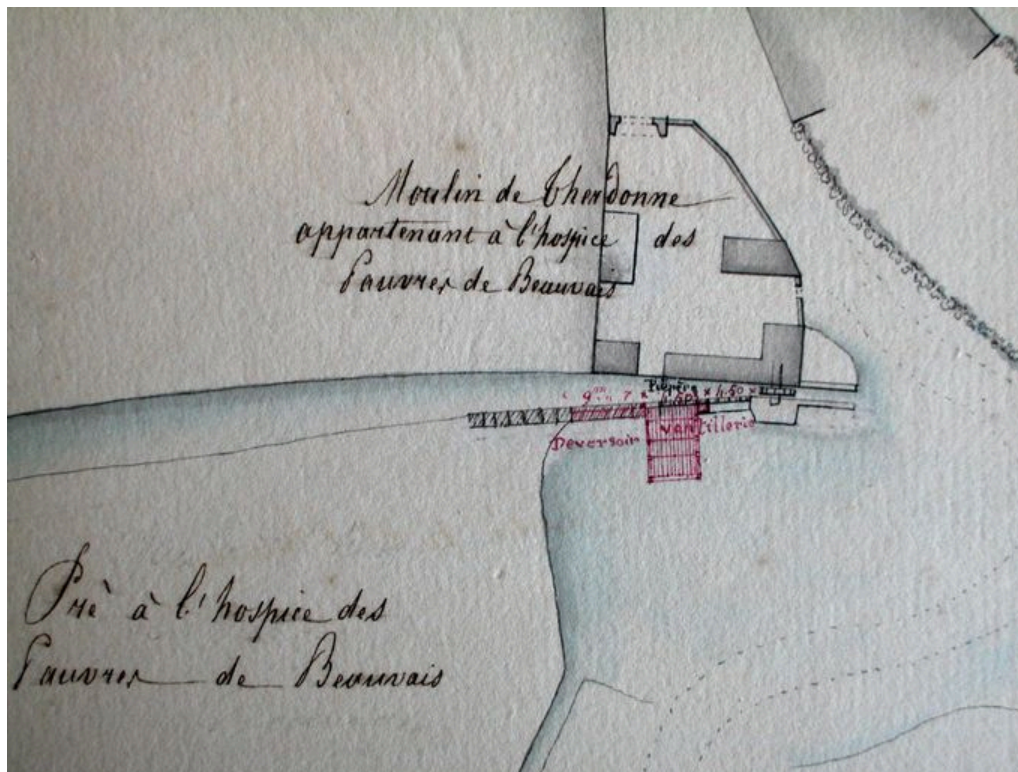 Moulin de Therdonne
appartenant à l'hospice des
Pauvres de Beauvais
Repère
9m 7 × 4.50 × 4.50 ×
Déversoir vantillerie
Pré à l'hospice des
Pauvres de Beauvais